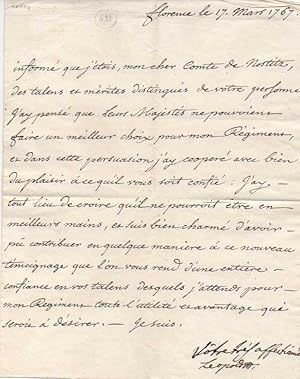 florence le 17. Mars 1767
informé que j'étois, mon cher Comte de Nostitz,
des talens et mérites distingués de vôtre personne
J'ay pensé que Leurs Majestés ne pouvoient
faire un meilleur choix pour mon Régiment,
et dans cette persuasion j'ay cooperé avec bien
du plaisir à ce qu'il vous soit confié: J'ay
tout lieu de croire qu'il ne pourroit etre en
meilleurs mains, et suis bien charmé d'avoir
pû contribuer en quelque manière à ce nouveau
témoignage que l'on vous rend d'une entiere
confiance en vos talens desquels j'attends pour
mon Regiment toute l'utilité et avantage qué
à désirer. Je suis.
Vôtre affectionné
Leopold